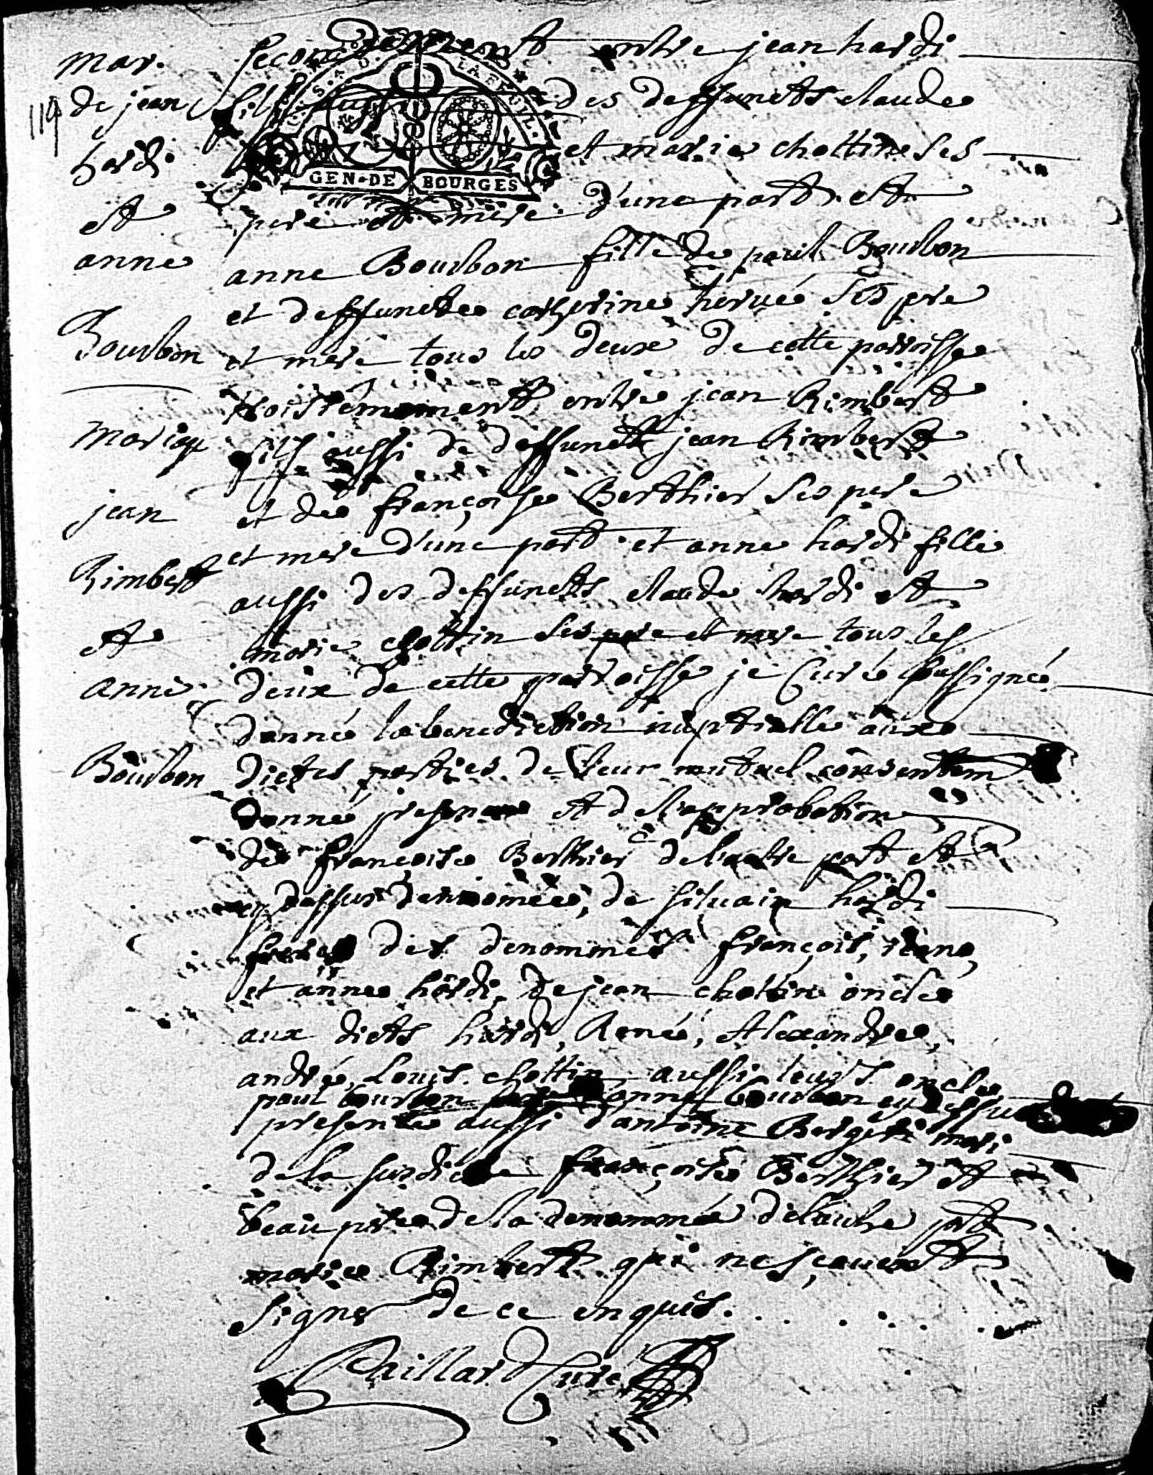 mar.
de jean
119
hardi
et
anne
Bourbon
Secondement entre jean hardi
fils aussi des deffuncts claude
GEN. DE BOURGES
et marie chottin ses
pere et mere d'une part et
anne Bourbon fille de paul Bourbon
et deffuncte catherine hervé ses pre
et mere tous les deux de cette parroisse
mariage
jean
Rimbert
et
anne
Bourbon
troisiemement entre jean Rimbert
fils aussi de deffunct jean Rimbert
et de françoise Berthier ses pere
et mere d'une part et anne hardi fille
aussi des deffuncts claude hardi et
marie chottin ses pere et mere tous les
deux de cette parroisse je Curé soussigné
donné la benediction nuptialle aux
dictes parties de leur mutuel consentem
donné presence et de l'approbation
de françoise Berthier de l'autre part et
cy dessus denommée, de silvain hardi
frere des denommés françois, rene,
et anne hardi, de jean chottin oncle
aux dicts hardi, René, Alexandre,
andré, Louis chottin aussi leurs oncles
paul bourbon anne bourbon cy dessus
presente aussi d'antoine Berger mari
de la susdicte françoise Berthier et
beau pere de la denommée de l'autre part
marie Rimbert qui ne scavent
signer de ce enquis.
Paillard Curé